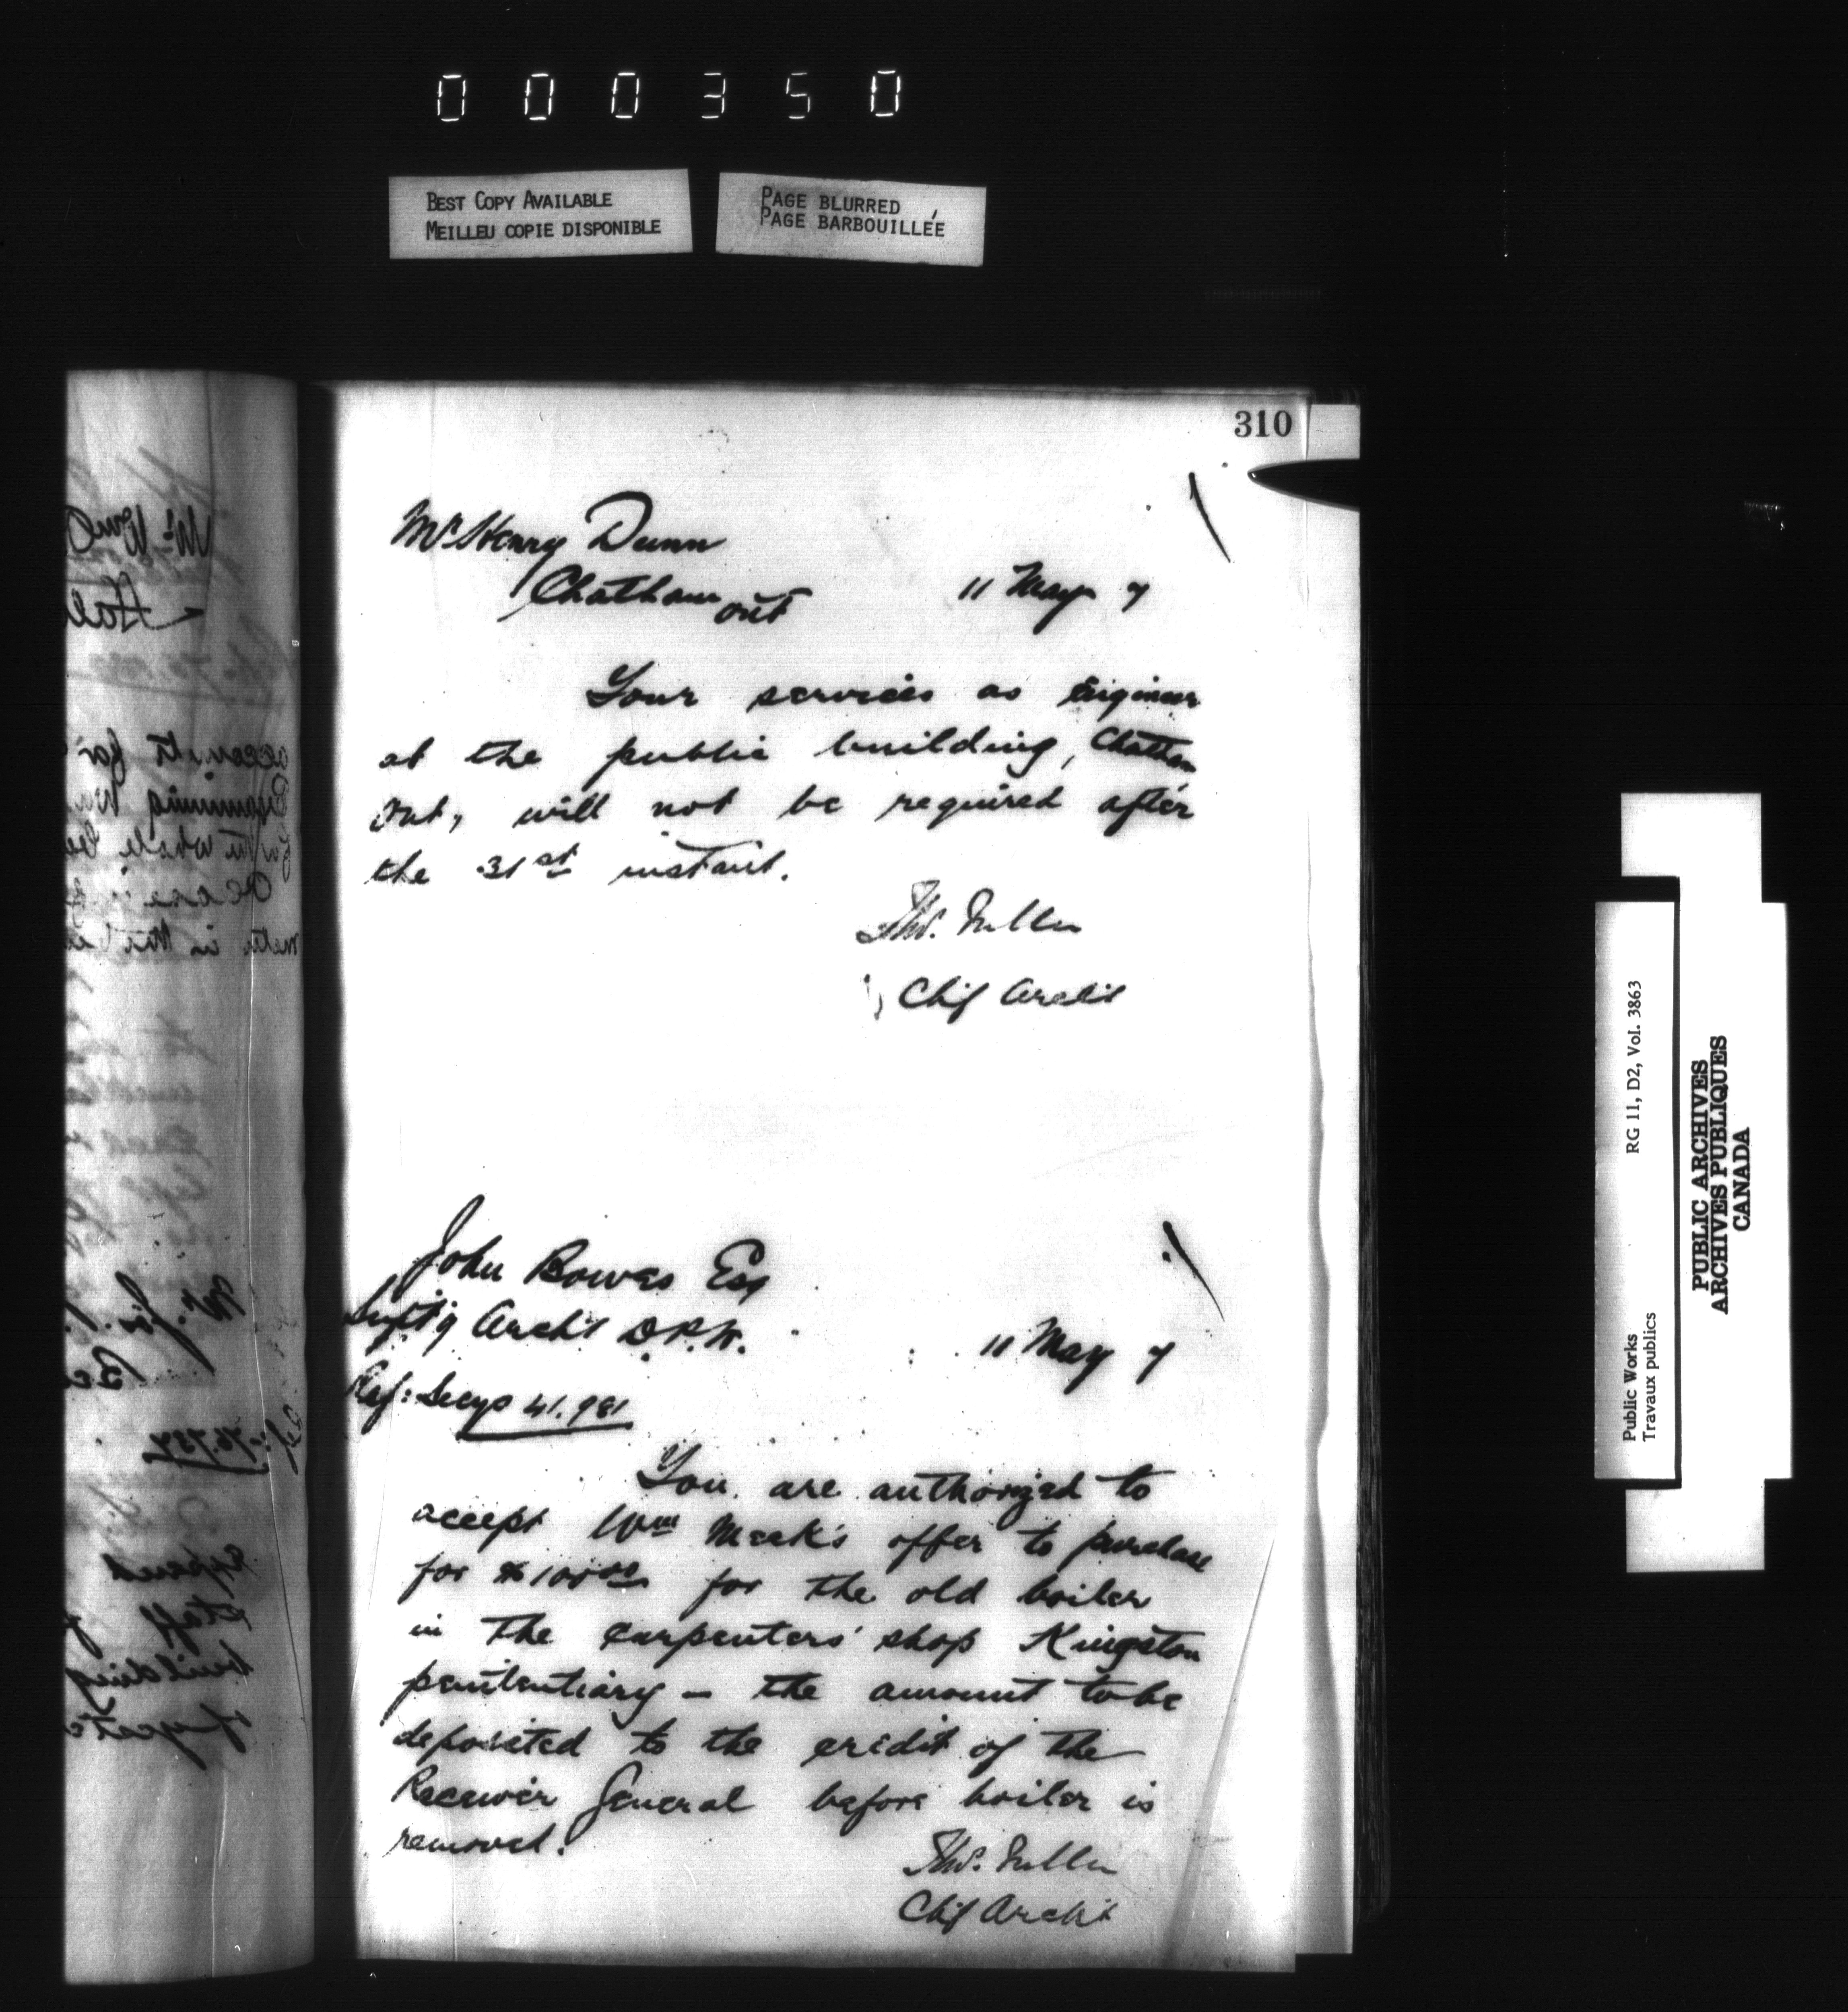 000350
BEST COPY AVAILABLE
MEILLEU COPIE DISPONIBLE
PAGE BLURRED
PAGE BARBOUILLÉE
310
Mr Henry Dunn
Chatham Ont
11 May 7
Your services as Engineer
at the public building, Chatham
Ont, will not be required after
the 31st instant.
Thos. Fuller
Chif Archt
John Bowes Esq
Archt D.P.W.
11 May 7
Ref: Secys 41.981
You are authorized to
accept Wm Meek's offer to purchase
for $100.00 for the old boiler
in the carpenters' shop Kingston
penitentiary – the amount to be
deposited to the credit of the
Receiver General before boiler is
removed.
Thos. Fuller
Chif Archt
RG 11, D2, Vol. 3863
Public Works
Travaux publics
PUBLIC ARCHIVES
ARCHIVES PUBLIQUES
CANADA